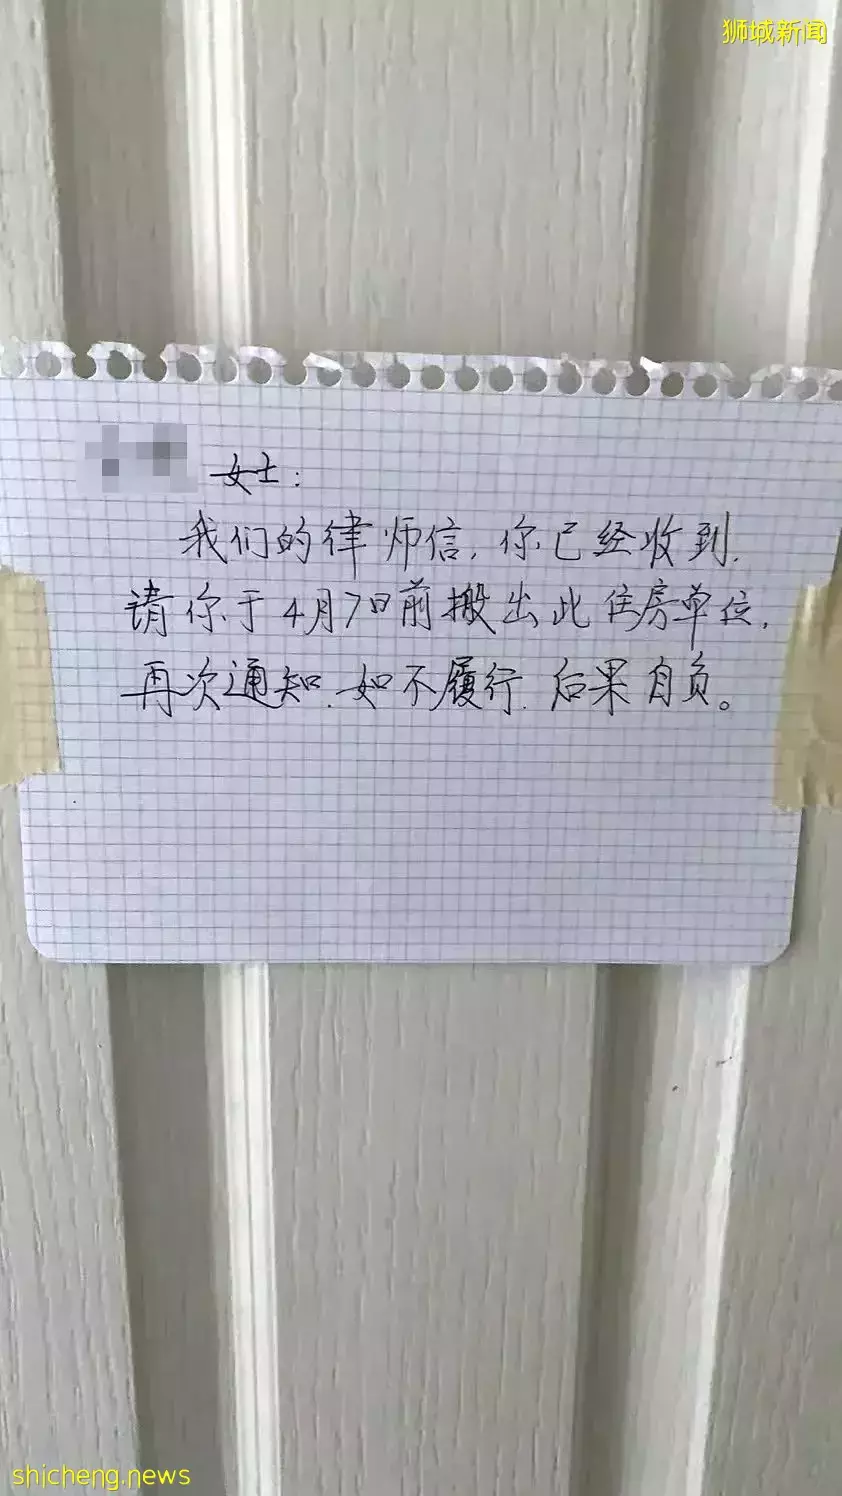 狮城新闻
女士：
我们的律师信，你已经收到，
请你于4月7日前搬出此住房单位，
再次通知，如不履行，后果自负。
shicheng.news